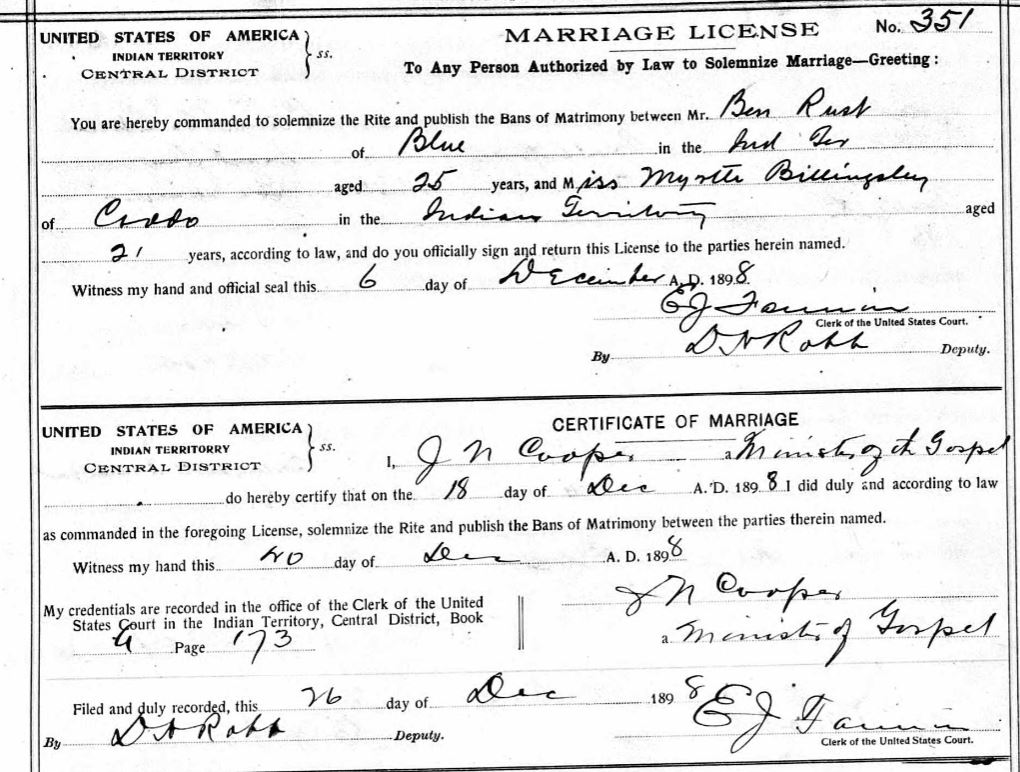 UNITED STATES OF AMERICA } ss. MARRIAGE LICENSE No. 351
INDIAN TERRITORY
CENTRAL DISTRICT To Any Person Authorized by Law to Solemnize Marriage—Greeting:
You are hereby commanded to solemnize the Rite and publish the Bans of Matrimony between Mr. Ben Rust
of Blue in the Ind Ter
aged 25 years, and Miss Myrtle Billingsley
of Caddo in the Indian Territory aged
21 years, according to law, and do you officially sign and return this License to the parties herein named.
Witness my hand and official seal this 6 day of December A. D. 1898.
E J Fannin
Clerk of the United States Court.
By D N Robb Deputy.
CERTIFICATE OF MARRIAGE
UNITED STATES OF AMERICA } ss.
INDIAN TERRITORRY
CENTRAL DISTRICT I, J N Cooper a Minister of the Gospel
do hereby certify that on the 18 day of Dec A. D. 1898 I did duly and according to law
as commanded in the foregoing License, solemnize the Rite and publish the Bans of Matrimony between the parties therein named.
Witness my hand this day of Dec A. D. 1898
J N Cooper
My credentials are recorded in the office of the Clerk of the United
States Court in the Indian Territory, Central District, Book
Page 173 a Minister of Gospel
Filed and duly recorded, this 26 day of Dec 1898 E J Fannin
By D N Robb Deputy. Clerk of the United States Court.